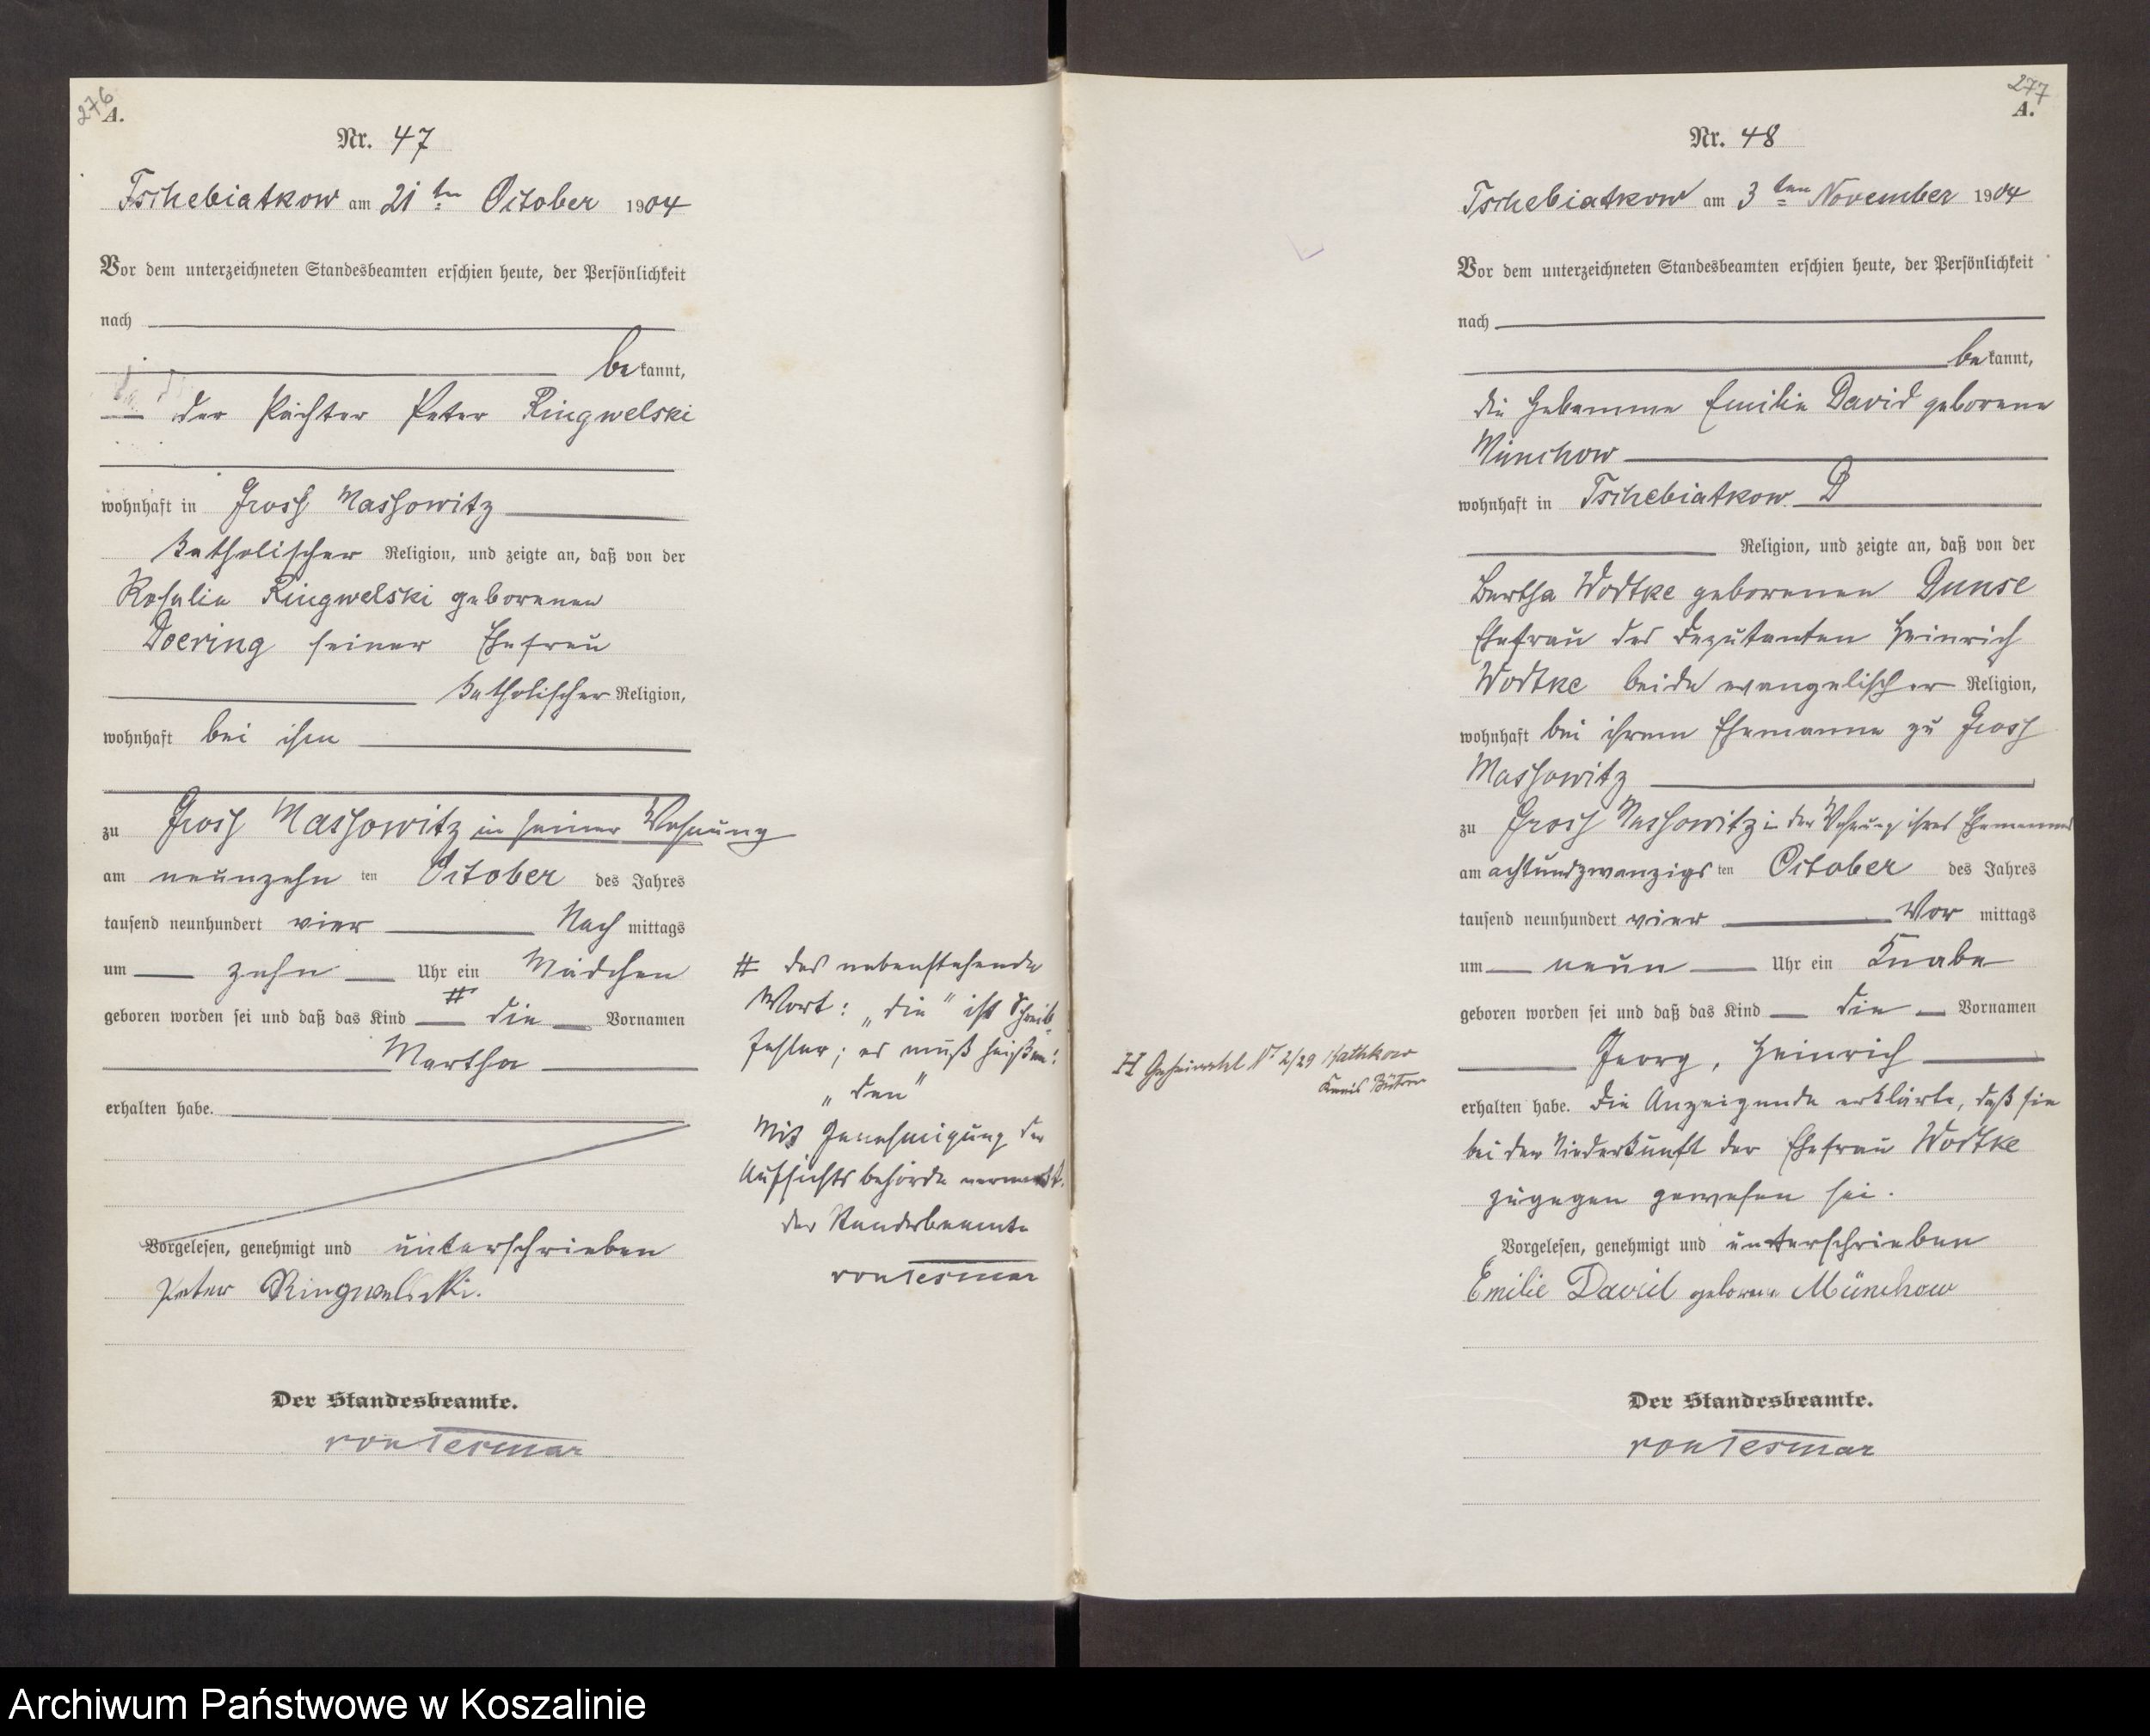 276
A.
Nr. 47
Tschebiatkow am 21 ten October 1904
Vor dem unterzeichneten Standesbeamten erschien heute, der Persönlichkeit
nach
bekannt,
der Pächter Peter Ringwelski
wohnhaft in Gross Massowitz
katholischer Religion, und zeigte an, daß von der
Rosalie Ringwelski geborenen
Doering seiner Ehefrau
katholischer Religion,
wohnhaft bei ihm
zu Gross Massowitz in seiner Wohnung
am neunzehn ten October des Jahres
tausend neunhundert vier Nach mittags
um zehn Uhr ein Mädchen
geboren worden sei und daß das Kind # die Vornamen
Martha
erhalten habe.
Vorgelesen, genehmigt und unterschrieben
Peter Ringwelski.
Der Standesbeamte.
von Tesmar
# das nebenstehende
Wort: „die" ist Schreib-
fehler; es muß heißen:
„den"
Mit Genehmigung der
Aufsichtsbehörde vermerkt.
Der Standesbeamte
von Tesmar
277
A.
Nr. 48
Tschebiatkow am 3 ten November 1904
Vor dem unterzeichneten Standesbeamten erschien heute, der Persönlichkeit
nach
bekannt,
die Hebamme Emilie David geborene
Münchow
wohnhaft in Tschebiatkow.
Religion, und zeigte an, daß von der
Bertha Wodtke geborenen Dunse
Ehefrau des Deputanten Heinrich
Wodtke beide evangelischer Religion,
wohnhaft bei ihrem Ehemanne zu Gross
Massowitz
zu Gross Massowitz in der Wohnung ihres Ehemannes
am achtundzwanzigs ten October des Jahres
tausend neunhundert vier Vor mittags
um neun Uhr ein Knabe
geboren worden sei und daß das Kind die Vornamen
Georg, Heinrich
erhalten habe. Die Anzeigende erklärte, daß sie
bei der Niederkunft der Ehefrau Wodtke
zugegen gewesen sei.
Vorgelesen, genehmigt und unterschrieben
Emilie David geborene Münchow
Der Standesbeamte.
von Tesmar
Nr 2/29
Kreis Bütow
Archiwum Państwowe w Koszalinie